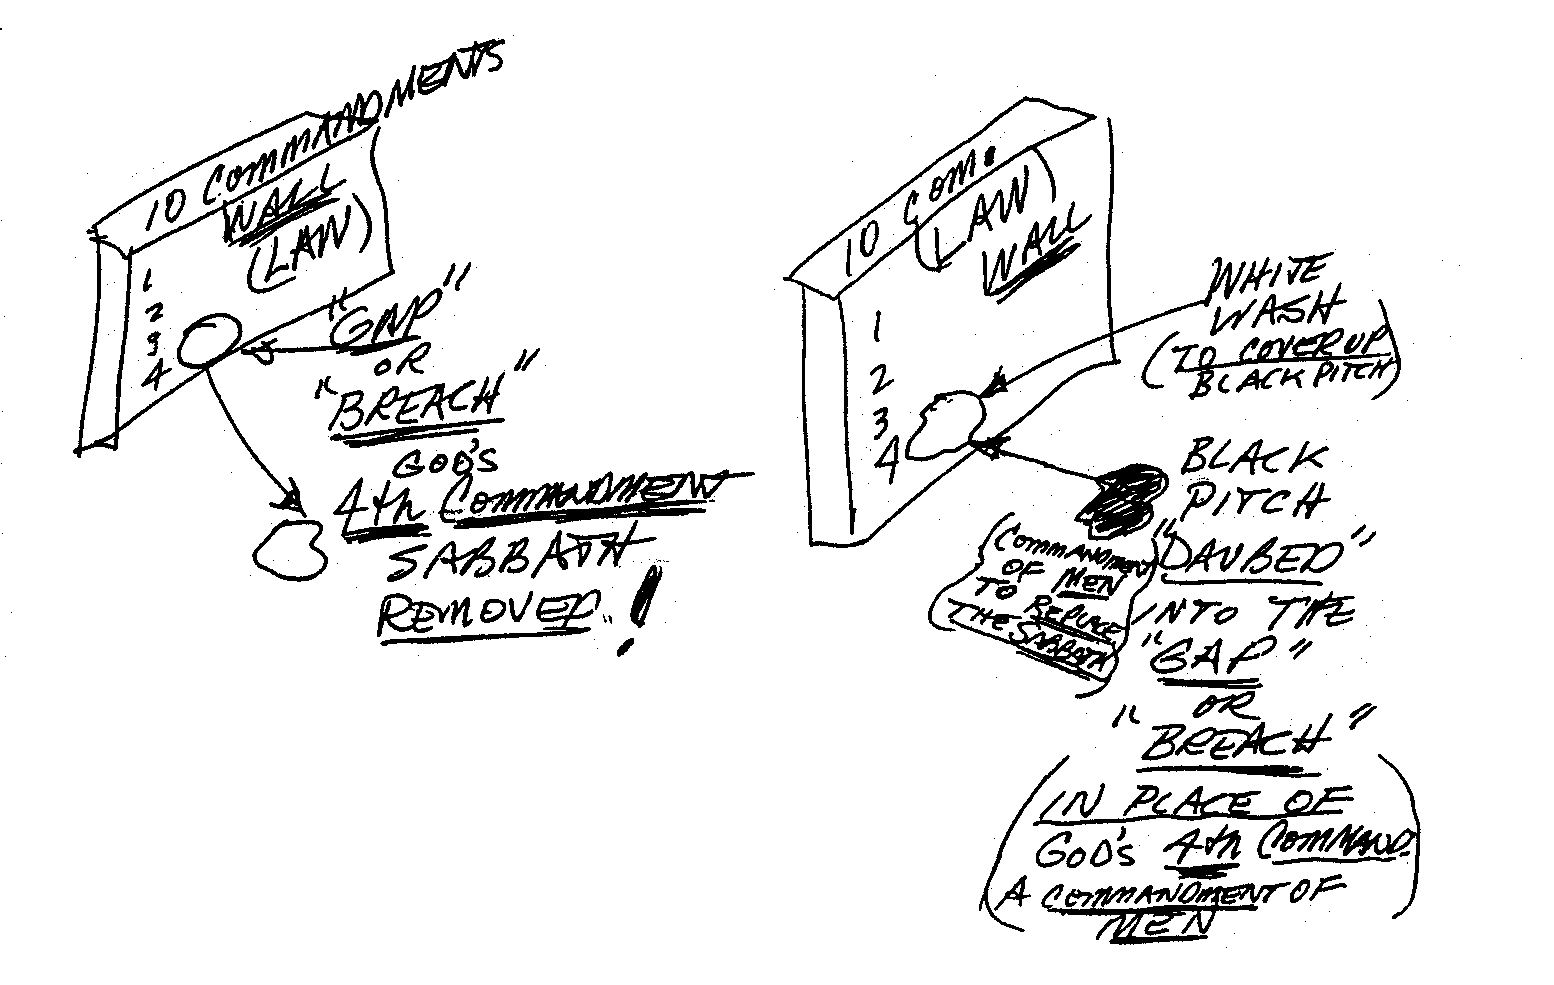 10 COMMANDMENTS
WALL
(LAW)
1
2
3
4
"GAP"
OR
"BREACH"
GOD'S
4th COMMANDMENT
SABBATH
REMOVED!
10 COM.
(LAW)
WALL
1
2
3
4
WHITE
WASH
(TO COVER UP
BLACK PITCH)
BLACK
PITCH
"DAUBED"
INTO THE
"GAP"
OR
"BREACH"
(COMMANDMENT
OF MEN
TO REPLACE
THE SABBATH)
(IN PLACE OF
GOD'S 4th COMMAND
A COMMANDMENT OF
MEN)